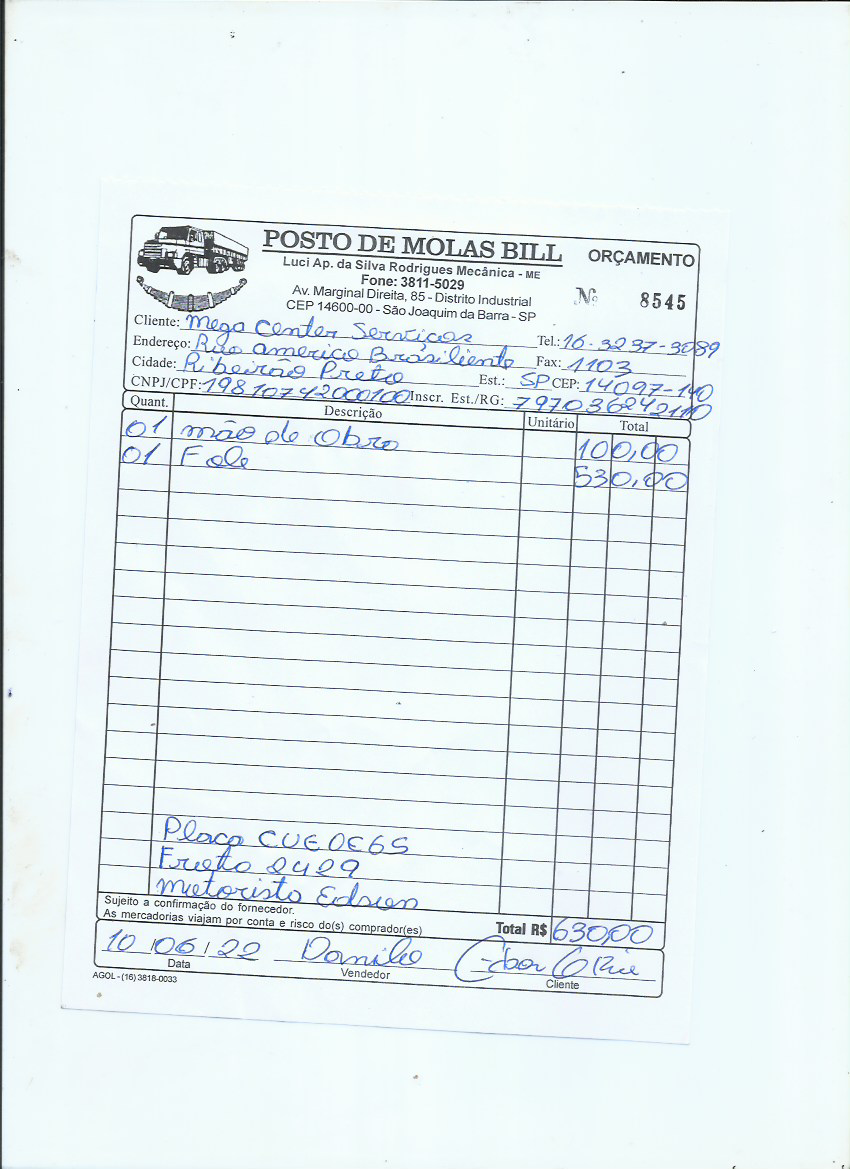 POSTO DE MOLAS BILL
ORÇAMENTO
Luci Ap. da Silva Rodrigues Mecânica - ME
Fone: 3811-5029
Av. Marginal Direita, 85 - Distrito Industrial
CEP 14600-00 - São Joaquim da Barra - SP
Nº 8545
Cliente: Mega Center Serviços Tel.: 16-3237-3089
Endereço: Rua americo Brasiliente Fax: 1103
Cidade: Ribeirão Preto Est.: SP CEP: 14097-140
CNPJ/CPF: 19810742000100 Inscr. Est./RG: 797036242110
Quant. Descrição Unitário Total
01 mão de Obra 100,00
01 Fole 530,00
Placa CUE0E65
Frota 2429
Motorista Edson
Sujeito a confirmação do fornecedor.
As mercadorias viajam por conta e risco do(s) comprador(es)
Total R$ 630,00
10/06/22 Danilo
Data Vendedor Cliente
AGOL - (16) 3818-0033